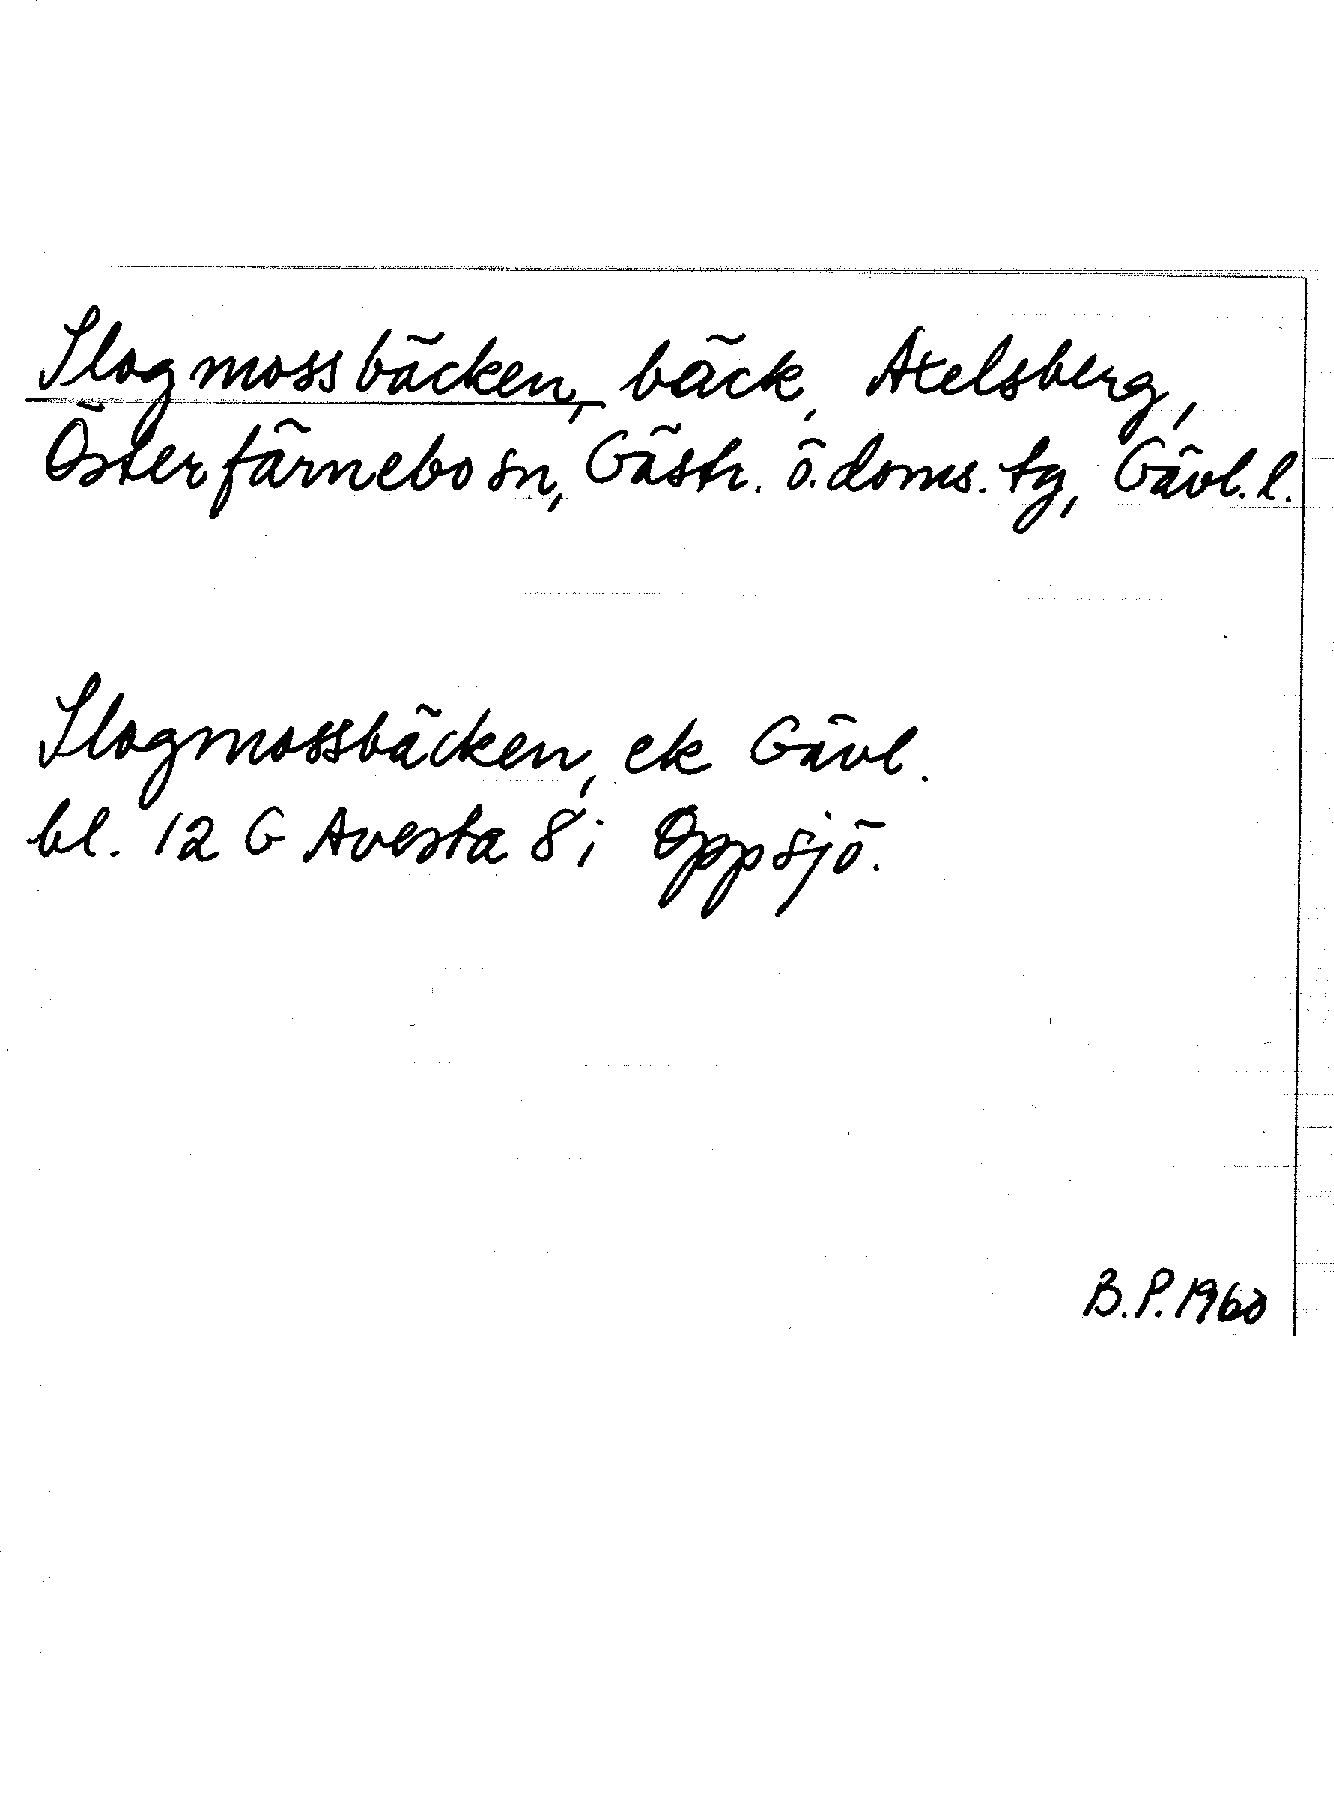 Slogmossbäcken, bäck, Axelsberg,
Österfärnebo sn, Gästr. ö. doms. tg, Gävl. l.
Slogmossbäcken, ek Gävl.
bl. 12 G Avesta 8 i Oppsjö.
B.P. 1960